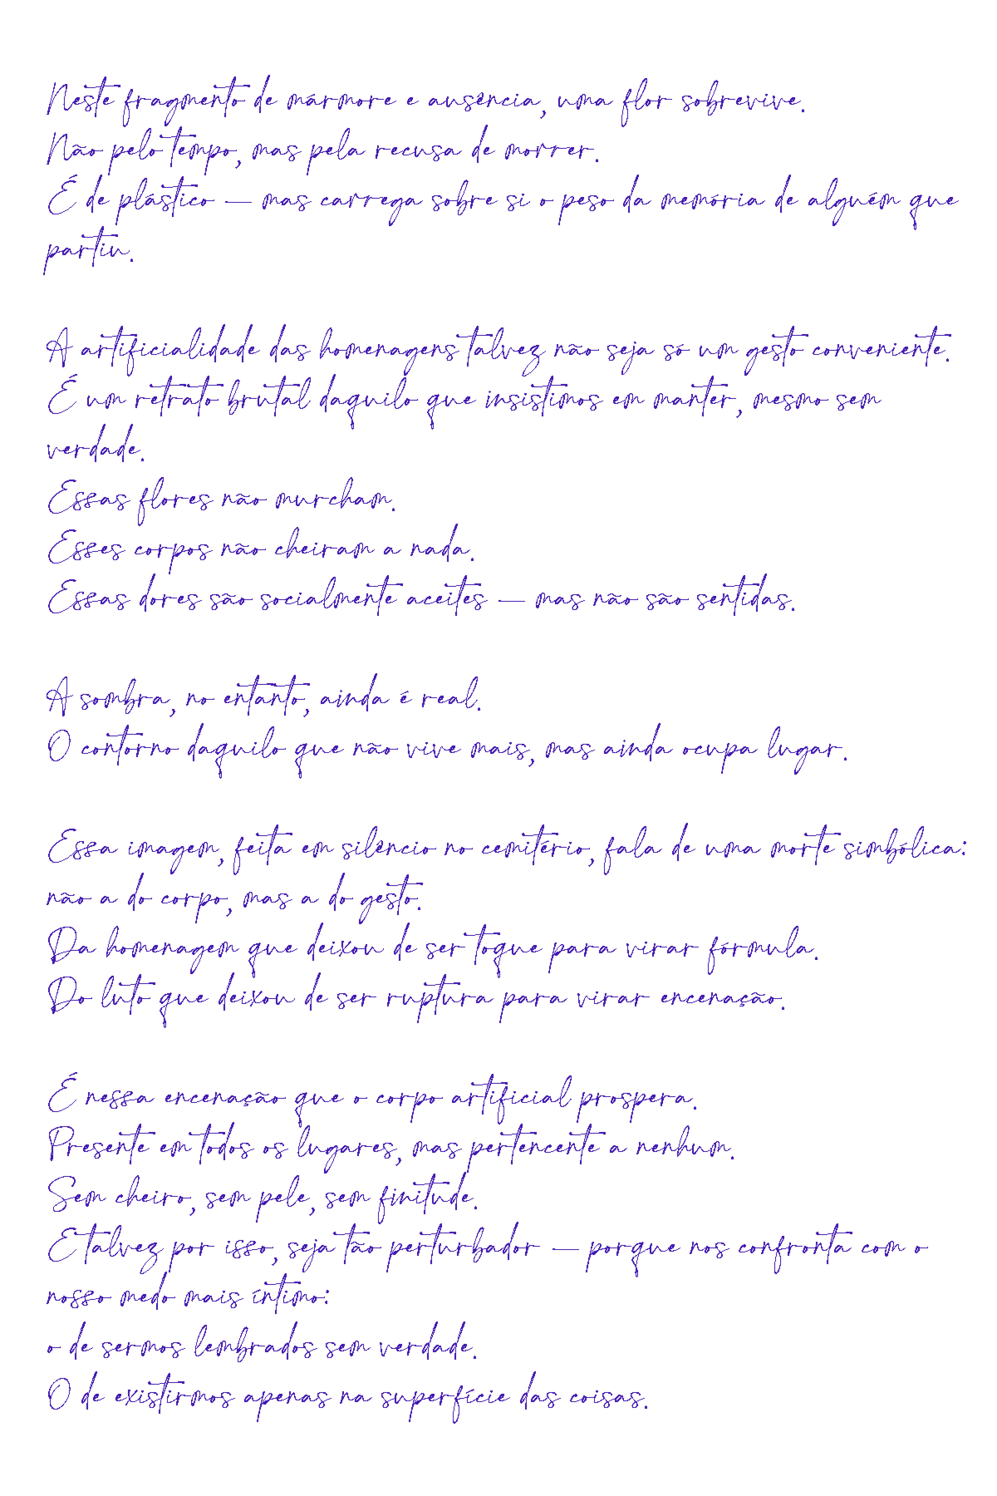 Neste fragmento de mármore e ausência, uma flor sobrevive.
Não pelo tempo, mas pela recusa de morrer.
É de plástico — mas carrega sobre si o peso da memória de alguém que
partiu.
A artificialidade das homenagens talvez não seja só um gesto conveniente.
É um retrato brutal daquilo que insistimos em manter, mesmo sem
verdade.
Essas flores não murcham.
Esses corpos não cheiram a nada.
Essas dores são socialmente aceites — mas não são sentidas.
A sombra, no entanto, ainda é real.
O contorno daquilo que não vive mais, mas ainda ocupa lugar.
Essa imagem, feita em silêncio no cemitério, fala de uma morte simbólica:
não a do corpo, mas a do gesto.
Da homenagem que deixou de ser toque para virar fórmula.
Do luto que deixou de ser ruptura para virar encenação.
É nessa encenação que o corpo artificial prospera.
Presente em todos os lugares, mas pertencente a nenhum.
Sem cheiro, sem pele, sem finitude.
E talvez por isso, seja tão perturbador — porque nos confronta com o
nosso medo mais íntimo:
o de sermos lembrados sem verdade.
O de existirmos apenas na superfície das coisas.